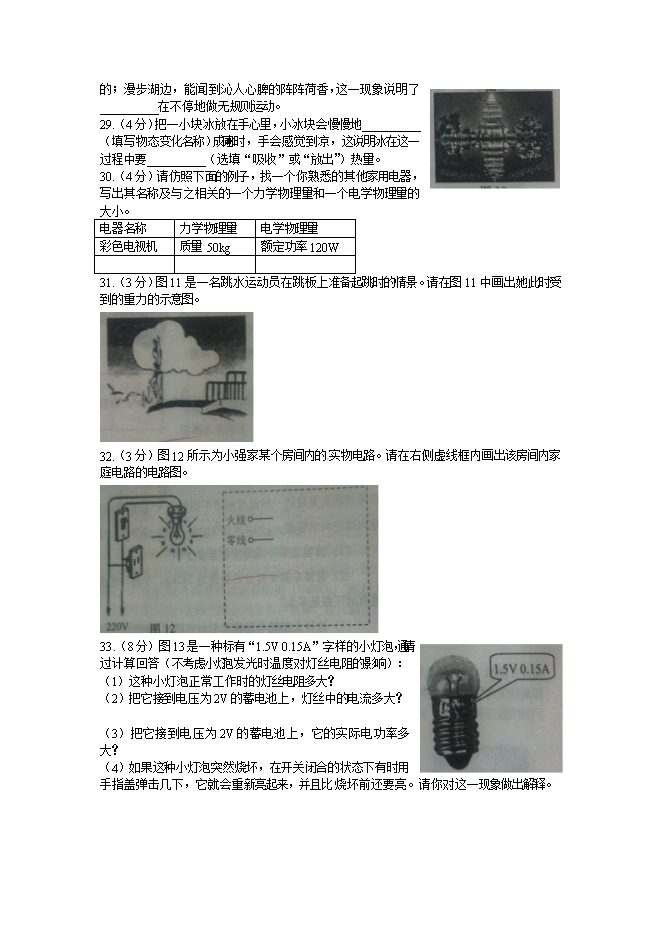 的；漫步湖边，能闻到沁人心脾的阵阵荷香，这一现象说明了
________在不停地做无规则运动。
29.（4分）把一小块冰放在手心里，小冰块会慢慢地________
（填写物态变化名称）成水，同时，手会感觉到凉，这说明冰在这一
过程中要________（选填“吸收”或“放出”）热量。
30.（4分）请仿照下面的例子，找一个你熟悉的其他家用电器，
写出其名称及与之相关的一个力学物理量和一个电学物理量的
大小。
电器名称 力学物理量 电学物理量
彩色电视机 质量 50kg 额定功率 120W
31.（3分）图 11 是一名跳水运动员在跳板上准备起跳时的情景。请在图 11 中画出她此时受
到的重力的示意图。
32.（3分）图 12 所示为小强家某个房间内的实物电路。请在右侧虚线框内画出该房间内家
庭电路的电路图。
火线
零线
220V 图 12
33.（8分）图 13 是一种标有“1.5V 0.15A”字样的小灯泡，请通
过计算回答（不考虑小灯泡发光时温度对灯丝电阻的影响）：
1.5V 0.15A
（1）这种小灯泡正常工作时的灯丝电阻多大？
（2）把它接到电压为 2V 的蓄电池上，灯丝中的电流多大？
（3）把它接到电压为 2V 的蓄电池上，它的实际电功率多
大？
（4）如果这种小灯泡突然烧坏，在开关闭合的状态下有时用
手指盖弹击几下，它就会重新亮起来，并且比烧坏前还要亮。请你对这一现象做出解释。